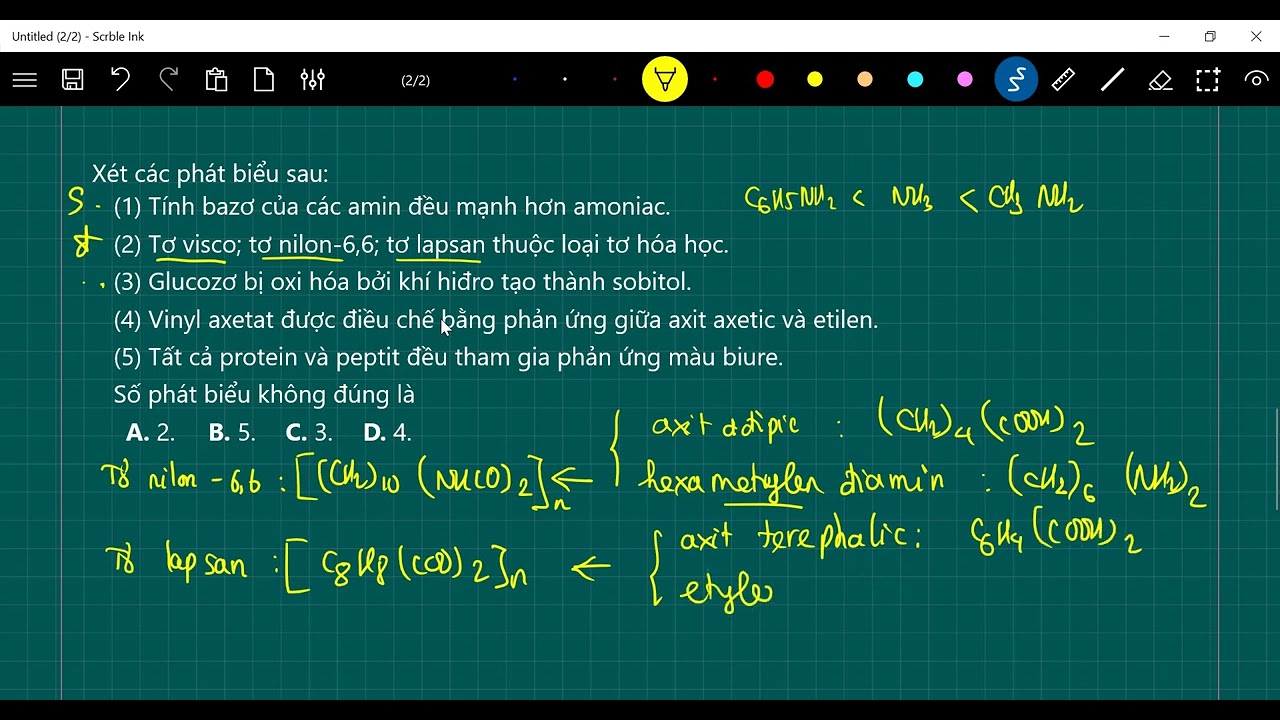 Untitled (2/2) - Scrble Ink
(2/2)
Xét các phát biểu sau:
S (1) Tính bazơ của các amin đều mạnh hơn amoniac. C6H5NH2 < NH3 < CH3 NH2
(2) Tơ visco; tơ nilon-6,6; tơ lapsan thuộc loại tơ hóa học.
(3) Glucozơ bị oxi hóa bởi khí hiđro tạo thành sobitol.
(4) Vinyl axetat được điều chế bằng phản ứng giữa axit axetic và etilen.
(5) Tất cả protein và peptit đều tham gia phản ứng màu biure.
Số phát biểu không đúng là
A. 2. B. 5. C. 3. D. 4.
axit adipic : (CH2)4 (COOH)2
Tơ nilon - 6,6 : [(CH2)10 (NHCO)2]n ← hexametylen diamin : (CH2)6 (NH2)2
axit terephalic : C6H4 (COOH)2
Tơ lapsan : [C8H8 (COO)2]n ← etyle